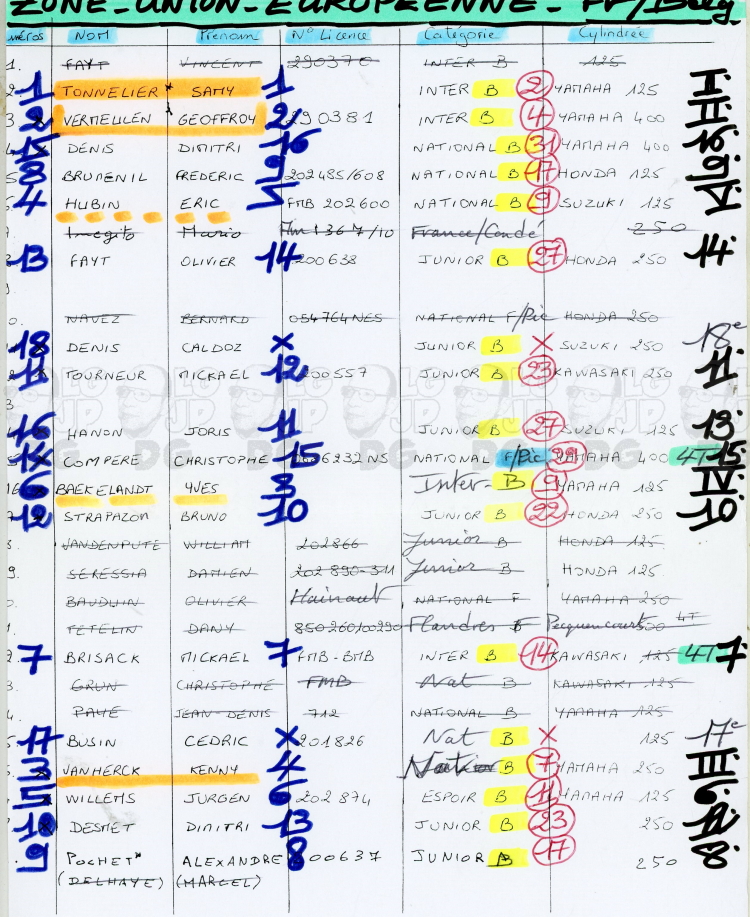 ZONE-UNION-EUROPÉENNE - FF/Belg
Numéros Nom Prénom N° Licence Catégorie Cylindrée
1. FAYT VINCENT 290370 INTER B 125
1 TONNELIER * SAMY 1 INTER B 2 YAMAHA 125 I
3 2 VERMEULEN GEOFFROY 2 290381 INTER B 4 YAMAHA 400 II
15 DENIS DIMITRI 16 NATIONAL B 31 YAMAHA 400 16
8 BRUNENIL FREDERIC 9 202485/608 NATIONAL B 17 HONDA 125 9
4 HUBIN ERIC 5 FMB 202600 NATIONAL B 9 SUZUKI 125 V
Incogito Mario France/Condé 250
13 FAYT OLIVIER 14 200638 JUNIOR B 27 HONDA 250 14.
9
0. NAVEZ BERNARD 054764NES NATIONAL F/Pic HONDA 250
18 DENIS CALDOZ X JUNIOR B X SUZUKI 250 18e
11 TOURNEUR MICKAEL 12 200557 JUNIOR B 23 KAWASAKI 250 11.
3
16 HANON JORIS 11 JUNIOR B 27 SUZUKI 125 13
COMPERE CHRISTOPHE 15 NATIONAL F/Pic 22 YAMAHA 400 4T 15
6 BAEKELANDT YVES 3 Inter - B 9 YAMAHA 125 IV
12 STRAPAZOM BRUNO 10 JUNIOR B 22 HONDA 250 10
8. VANDENPUTE WILLIAM 202866 Junior B HONDA 125
9. SERESSIA DAMIEN 202 890-311 Junior B HONDA 125
0. BAUDUIN OLIVIER Hainaut NATIONAL F YAMAHA 250
1. FETELIN DANY Flandres F Pecquencourt 500 4T
2. 7 BRISACK MICKAEL 7 FMB-BMB INTER B 14 KAWASAKI 125 4T 7
3. GRUN CHRISTOPHE FMB Nat B KAWASAKI 125
4. PAVÉ JEAN-DENIS 712 NATIONAL B YAMAHA 125
17 BUSIN CEDRIC X 201826 Nat B X 125 17e
3 VANHERCK KENNY 4 B 7 YAMAHA 250 III
5 WILLEMS JURGEN 6 202874 ESPOIR B 11 YAMAHA 125 6
10 DESMET DIMITRI 13 JUNIOR B 23 250 12
9 POCHET* ALEXANDRE 8 200637 JUNIOR B 17 250 8.
(DELHAYE) (MARCEL)
LG JD
DG